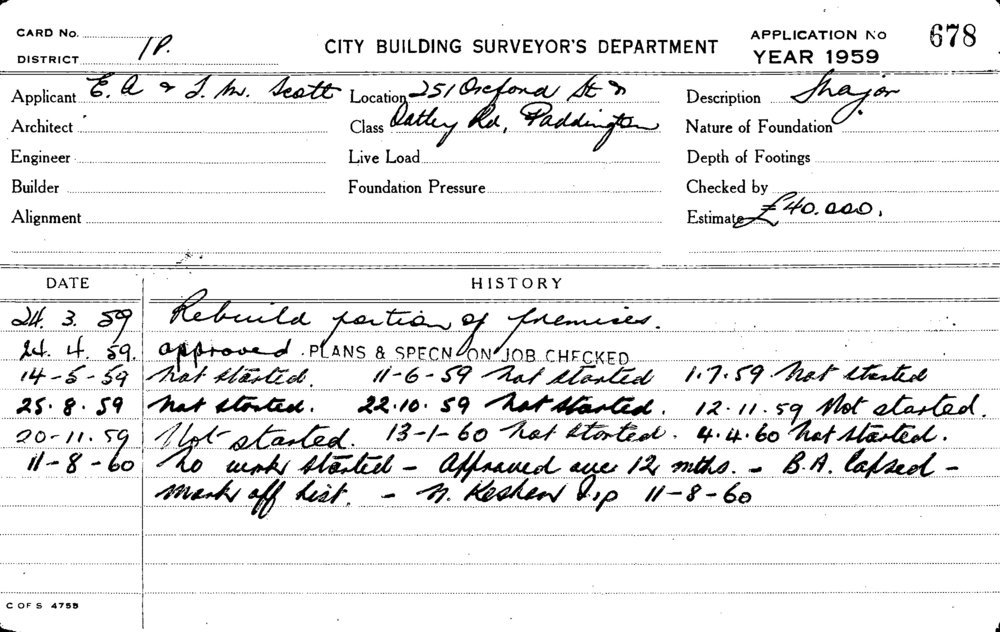 CARD No.
CITY BUILDING SURVEYOR'S DEPARTMENT
APPLICATION No 678
DISTRICT 1P.
YEAR 1959
Applicant E. A & J. M. Scott Location 251 Oxford St & Description Major
Architect Class Oatley Rd, Paddington Nature of Foundation
Engineer Live Load Depth of Footings
Builder Foundation Pressure Checked by
Alignment Estimate £40.000.
DATE HISTORY
24. 3. 59 Rebuild portion of premises.
24. 4. 59. approved. PLANS & SPECN ON JOB CHECKED
14-5-59 not started. 11-6-59 not started 1.7.59. not started
25. 8. 59 not started. 22.10. 59 not started. 12.11.59 Not started.
20-11.59 Not started. 13-1-60 not started. 4.4.60 not started.
11-8-60 no work started - Approved over 12 mths. - B.A. lapsed -
mark off list. - 11-8-60
C OF S 475B